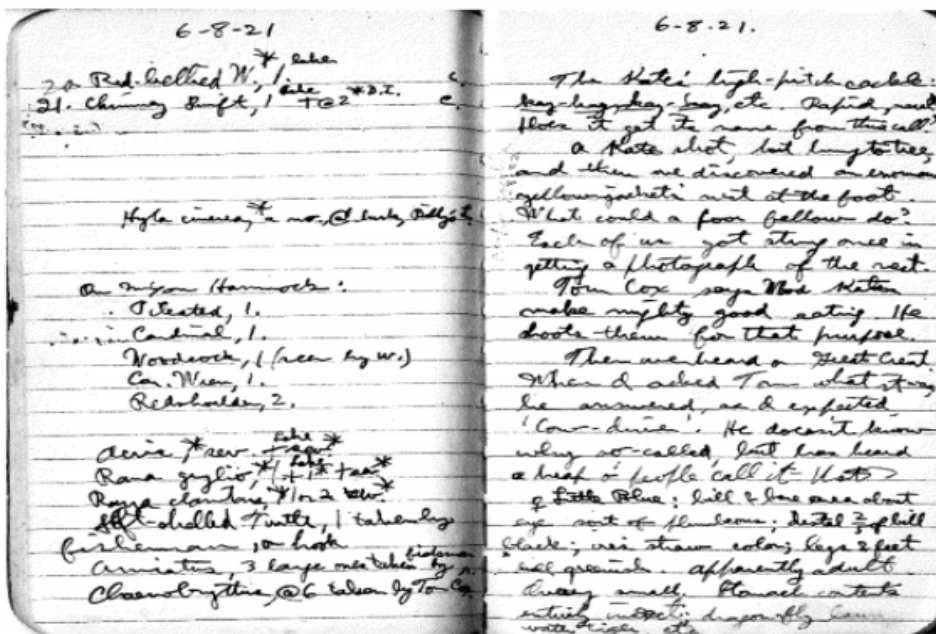 6-8-21
20. Red-bellied W., 1.* lake
21. Chimney Swift, 1 lake + @2 *D.I. c.
Hyla cinerea,* a no., @
On Mixon Hammock:
Pileated, 1.
Cardinal, 1.
Woodcock, 1 (seen by W.)
Car. Wren, 1.
Redshoulder, 2.
Acris,* sev. + sev.* lake
Rana grylio,* 1 + 1* + sev.* lake
Rana clamitans,* 1 or 2 sev.*
Soft-shelled Turtle, 1 taken by
fisherman, on hook
Amiatus, 3 large ones taken by fisherman
Chaenobryttus, @6 taken by Tom Cox
6-8-21.
The Kate's high-pitch cackle:
kay-kay, kay-kay, etc. Rapid,
Does it get its name from this call?
A Kate shot, but hung to tree,
and then we discovered an enormous
yellow-jacket's nest at the foot.
What could a poor fellow do?
Each of us got stung once in
getting a photograph of the nest.
Tom Cox says Wood Kates
make mighty good eating. He
shoots them for that purpose.
Then we heard a Great Crest.
When I asked Tom what 'twas,
he answered, as I expected
'Cow-driver'. He doesn't know
why so-called, but has heard
a heap o' people call it that
♀ Little Blue: bill & bare area about
eye sort of plumbeous; distal ½ of bill
black; iris straw color; legs & feet
greenish. Apparently adult.
Ovary small. Stomach contents
entirely insects: dragonfly
water tiger, etc.